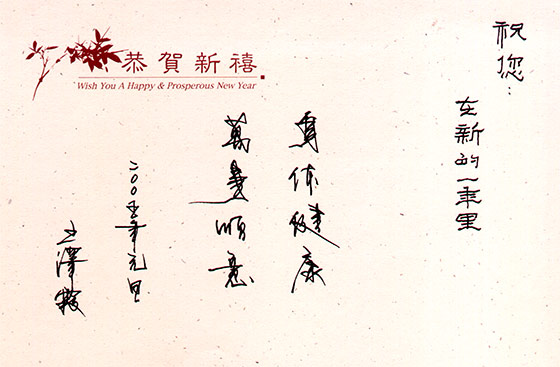 恭賀新禧
Wish You A Happy & Prosperous New Year
祝您:
在新的一年里
身体健康
萬事順意
二00五年元旦